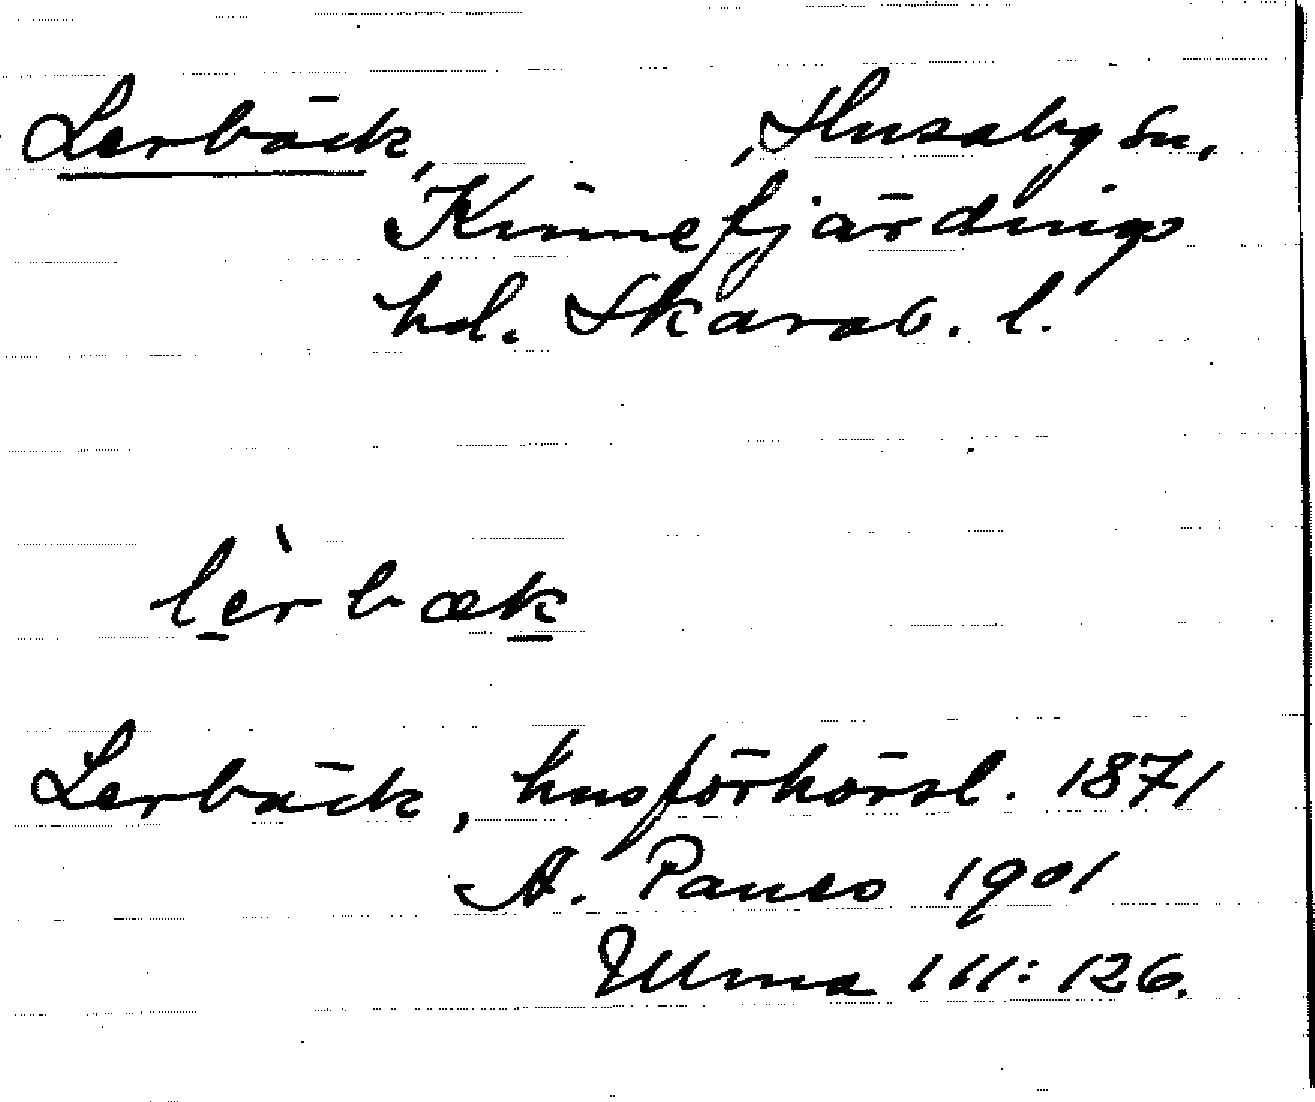 Lerbäck, , Husaby sn,
Kinnefjärdings
hd. Skarab. l.
lèrbæk
Lerbäck, husförhörsl. 1871
A. Paues 1901
Ulma 111: 126.